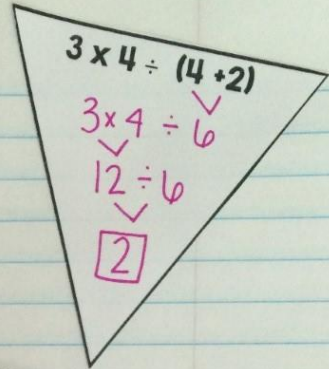 3 x 4 ÷ (4 +2)
3×4 ÷ 6
12 ÷ 6
2